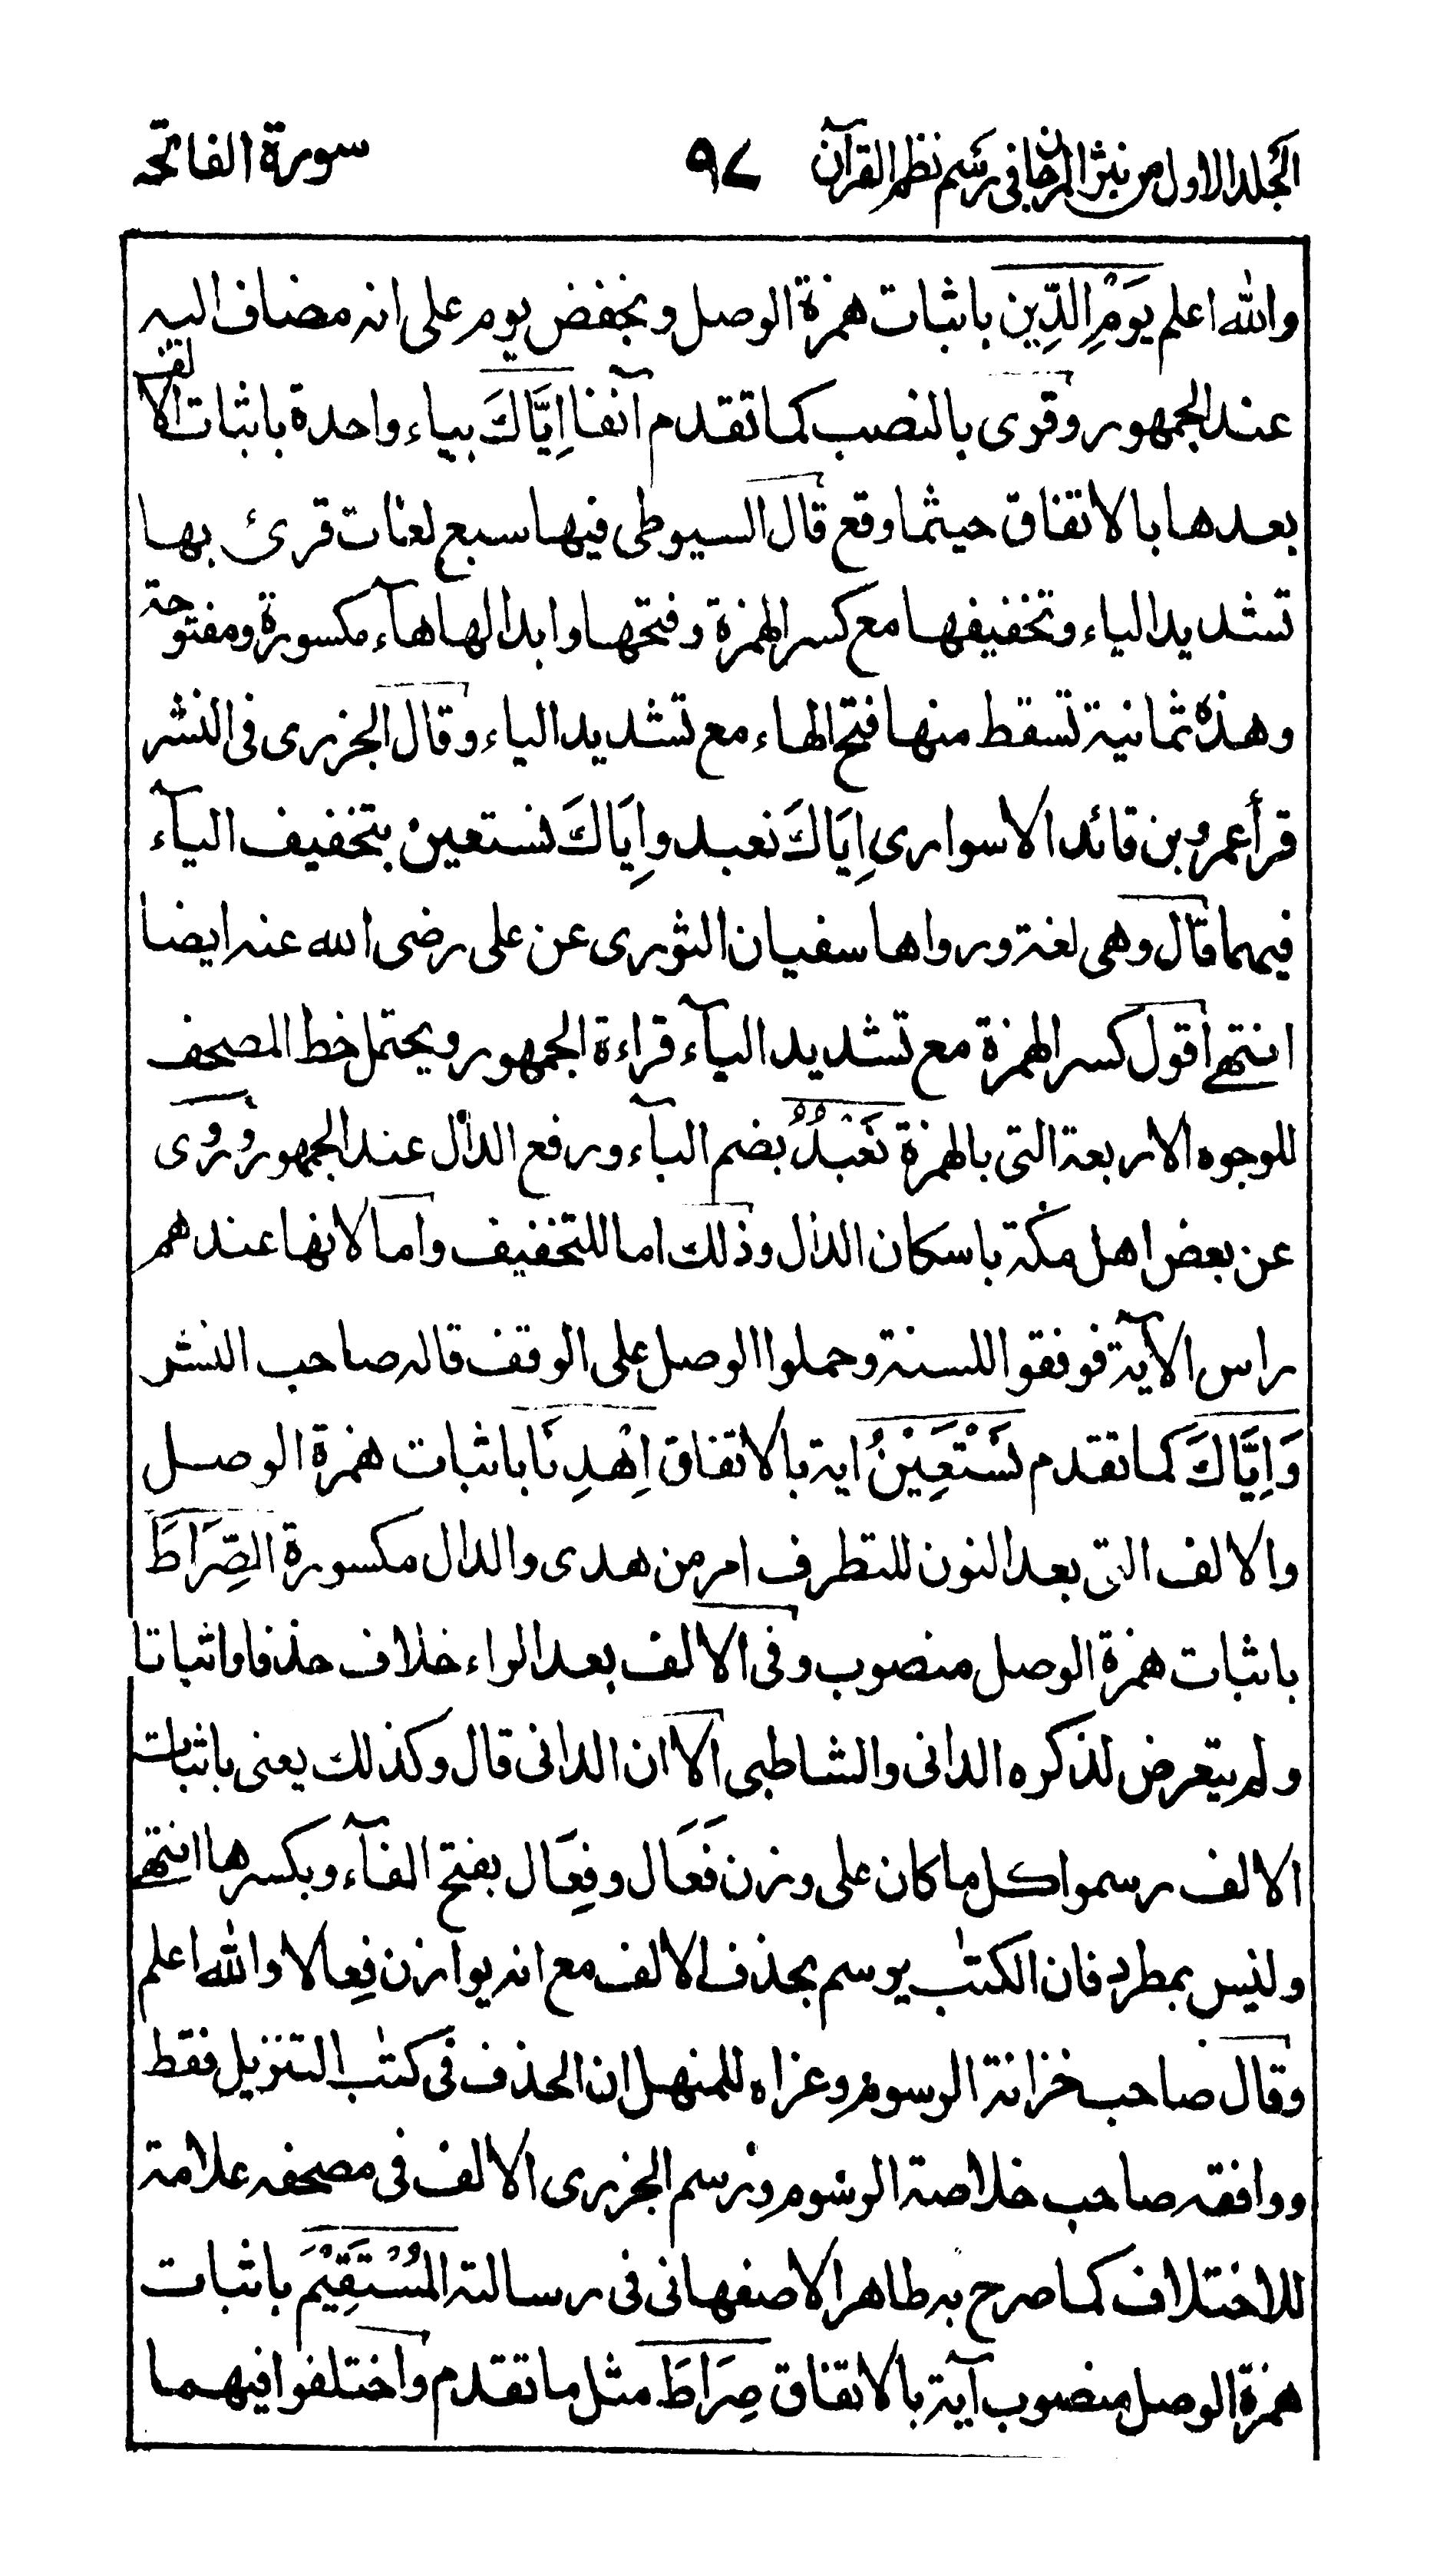 المجلد الاول من نثر المرجان في رسم نظم القرآن ٩٧ سورة الفاتحة
والله اعلم يَوْمِ الدِّينِ باثبات همزة الوصل وبخفض يوم على انه مضاف اليه
عند الجمهور وقرى بالنصب كما تقدم آنفا اِيَّاكَ بياء واحدة باثبات الالف
بعدها بالاتفاق حيثما وقع قال السيوطى فيها سبع لغات قرئ بها
تشديد الياء وتخفيفها مع كسر الهمزة وفتحها وابدالها هآء مكسورة ومفتوحة
وهذه ثمانية تسقط منها فتح الهاء مع تشديد الياء وقال الجزرى فى النشر
قرأ عمرو بن قائد الاسوارى اِيَاكَ نعبد واِيَاكَ نستعين بتخفيف اليآء
فيهما قال وهى لغة ورواها سفيان الثورى عن على رضى الله عنه ايضا
انتهى اقول كسر الهمزة مع تشديد اليآء قراءة الجمهور ويحتمل خط المصحف
للوجوه الاربعة التى بالهمزة نَعْبُدُ بضم البآء ورفع الدال عند الجمهور وروى
عن بعض اهل مكة باسكان الدال وذلك اما للتخفيف واما لانها عندهم
راس الآية فوفقوا للسنة وحملوا الوصل على الوقف قاله صاحب النشر
وَاِيَّاكَ كما تقدم نَسْتَعِيْنُ اية بالاتفاق اِهْدِنَا باثبات همزة الوصل
والالف التى بعد النون للتطرف امر من هدى والدال مكسورة الصِّرَاطَ
باثبات همزة الوصل منصوب وفى الالف بعد الراء خلاف حذفا واثباتا
ولم يتعرض لذكره الدانى والشاطبى الا ان الدانى قال وكذلك يعنى باثبات
الالف رسموا كل ما كان على وزن فَعَال وفِعَال بفتح الفآء وبكسرها انتهى
وليس بمطرد فان الكتٰب يوسم بحذف الالف مع انه يوازن فِعالا والله اعلم
وقال صاحب خزانة الرسوم وعزاه للمنهل ان الحذف فى كتٰب التنزيل فقط
ووافقه صاحب خلاصة الرسوم ورسم الجزرى الالف فى مصحفه علامة
للاختلاف كما صرح به طاهر الاصفهانى فى رسالته المُسْتَقِيْمَ باثبات
همزة الوصل منصوب آية بالاتفاق صِرَاطَ مثل ما تقدم واختلفوا فيهما